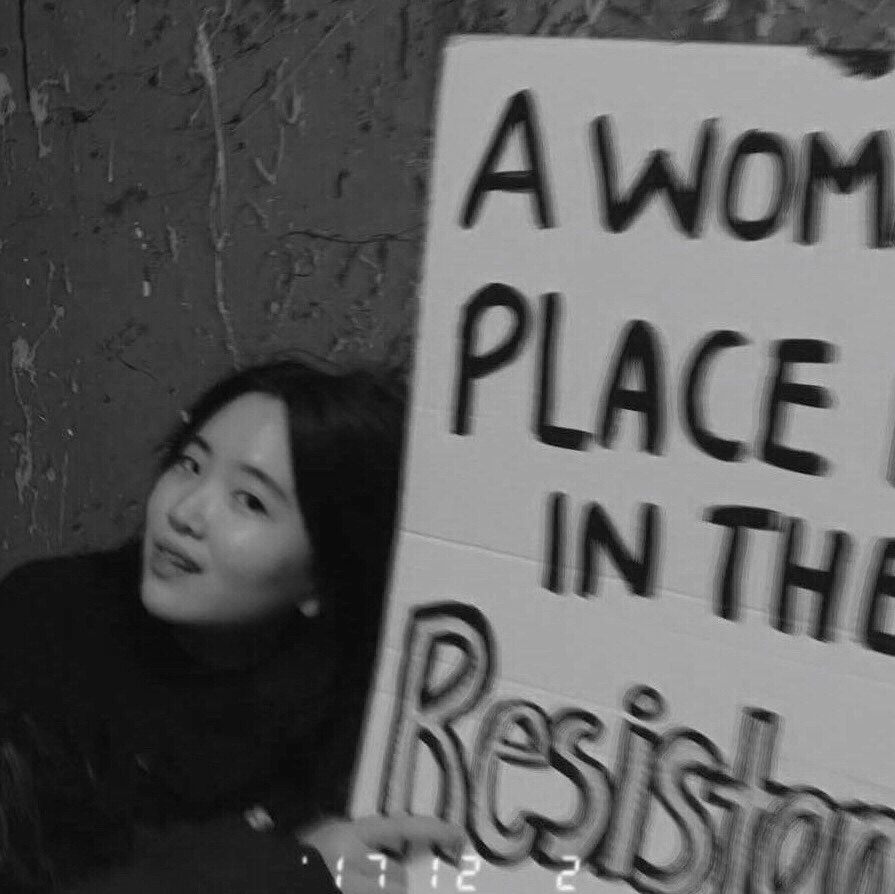 A WOM
PLACE
IN THE
Resistan
'17 12 2